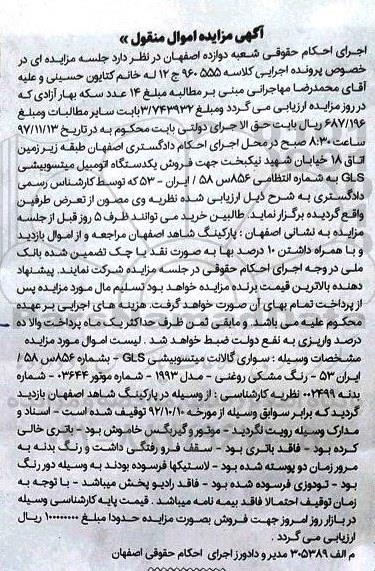 آگهی مزایده اموال منقول »
اجرای احکام حقوقی شعبه دوازده اصفهان در نظر دارد جلسه مزایده ای در
خصوص پرونده اجرایی کلاسه ۵۵۵ـ۹۶ ج ۱۲ له خانم کتایون حسینی و علیه
آقای محمدرضا مهاجرانی مبنی بر مطالبه مبلغ ۱۴ عدد سکه بهار آزادی که
در روز مزایده ارزیابی می گردد ومبلغ ۳/۷۴۳۹۳۲بابت سایر مطالبات ومبلغ
۶۸۷/۱۹۶ ریال بابت حق الا جرای دولتی بابت محکوم به در تاریخ ۹۷/۱۱/۱۳
ساعت ۸:۳۰ صبح در محل اجرای احکام دادگستری اصفهان طبقه زیرزمین
اتاق ۱۸ خیابان شهید نیکبخت جهت فروش یکدستگاه اتومبیل میتسوبیشی
GLS به شماره انتظامی ۸۵۶س ۵۸ / ایران - ۵۳ که توسط کارشناس رسمی
دادگستری به شرح ذیل ارزیابی شده نظریه وی مصون از تعرض طرفین
واقع گردیده برگزار نماید. طالبین خرید می توانند ظرف ۵ روز قبل از جلسه
مزایده به نشانی اصفهان : پارکینگ شاهد اصفهان مراجعه و از اموال بازدید
و با همراه داشتن ۱۰ درصد بها به صورت نقد یا چک تضمین شده بانک
ملی در وجه اجرای احکام حقوقی در جلسه مزایده شرکت نمایند. پیشنهاد
دهنده بالاترین قیمت برنده مزایده خواهد بود تسلیم مال مورد مزایده پس
از پرداخت تمام بهای آن صورت خواهد گرفت. هزینه های اجرایی بر عهده
محکوم علیه می باشد. و مابقی ثمن ظرف حداکثر یک ماه پرداخت والا ده
درصد واریزی به نفع دولت ضبط خواهد شد . لیست اموال مورد مزایده
مشخصات وسیله : سواری گالانت میتسوبیشی GLS - بشماره ۸۵۶س ۵۸ /
ایران ۵۳ - رنگ مشکی روغنی - مدل ۱۹۹۳ - شماره موتور ۰۳۶۴۴ - شماره
بدنه ۰۰۲۴۹۹ نظریه کارشناسی : از وسیله در پارکینگ شاهد اصفهان بازدید
گردید که برابر سوابق وسیله از مورخه ۹۲/۱۰/۱۰ توقیف شده است - اسناد و
مدارک وسیله رویت نگردید - موتور و گیربکس خاموش بود - باتری خالی
کرده بود - فاقد باتری بود - سقف فرو رفتگی داشت و رنگ بدنه به
مرور زمان دو پوسته شده بود - لاستیکها فرسوده بودند به وسیله دور رنگ
بود - تودوزی فرسوده شده بود - فاقد رادیو پخش میباشد - با توجه به
زمان توقیف احتمالا فاقد بیمه نامه میباشد . قیمت پایه کارشناسی وسیله
در بازار روز امروز جهت فروش بصورت مزایده حدودا مبلغ ۱۰۰۰۰۰۰۰۰ ریال
ارزیابی می گردد .
م الف ۳۰۵۳۸۹ مدیر و دادورز اجرای احکام حقوقی اصفهان